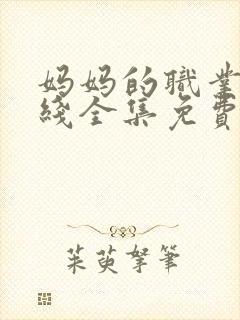 妈妈的職業
綫全集免費
茱萸拏筆